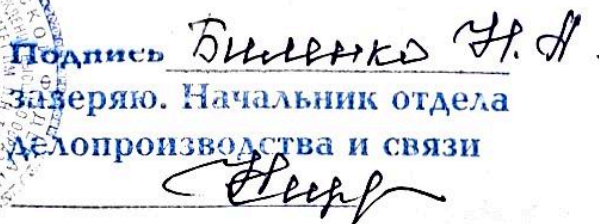 Подпись Биленко Н. А.
заверяю. Начальник отдела
делопроизводства и связи